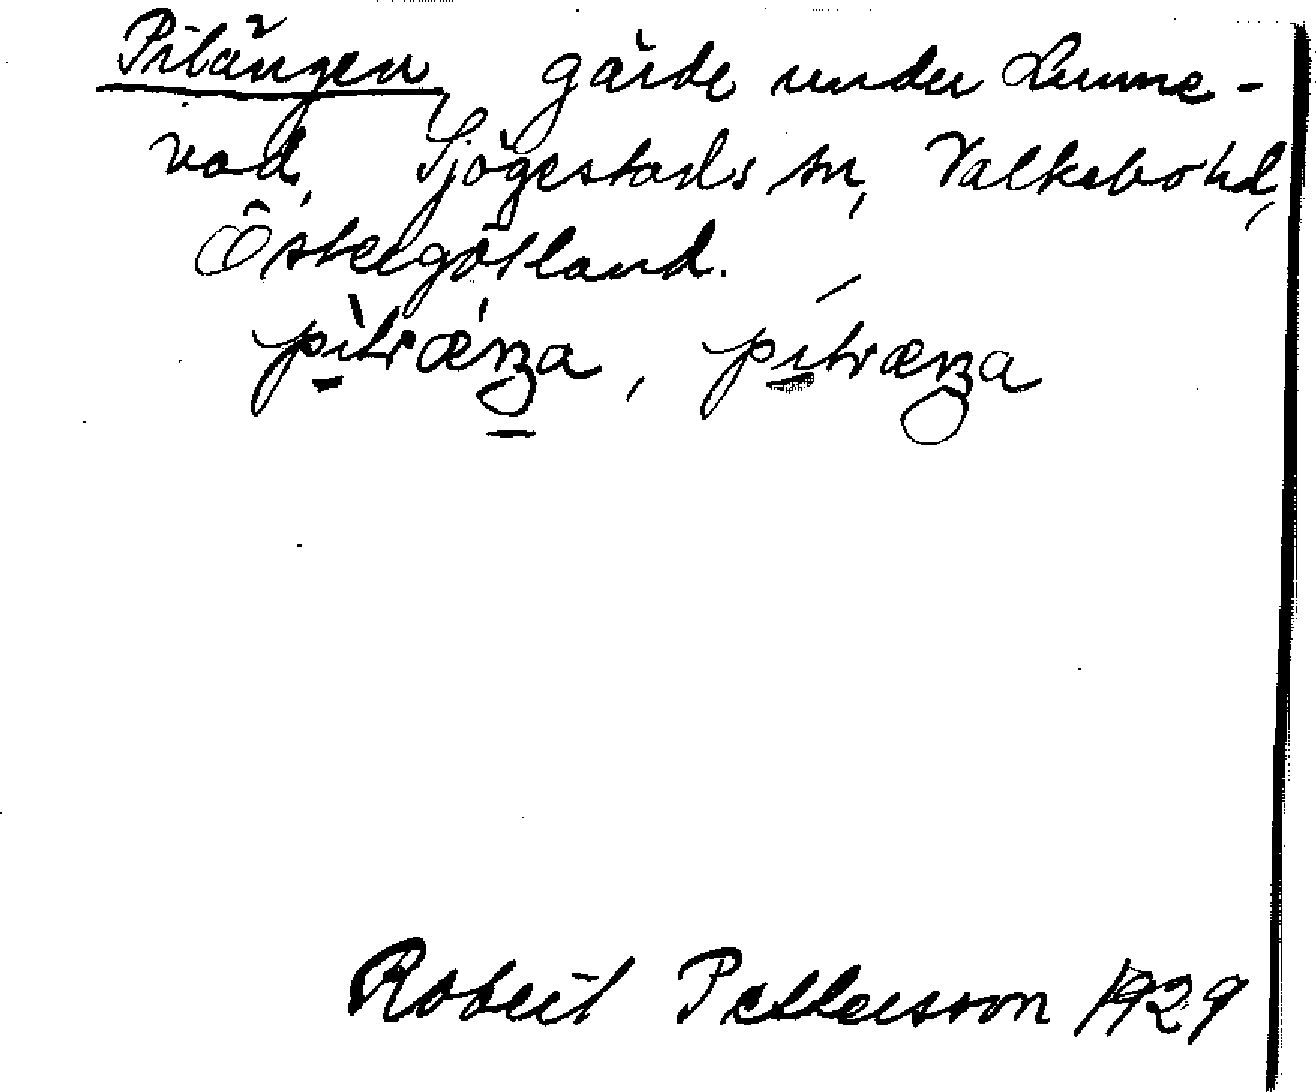 Pilängen, gärde under Lunne-
vad, Sjögestads sn, Valkebo hd,
Östergötland.
Robert Pettersson 1929